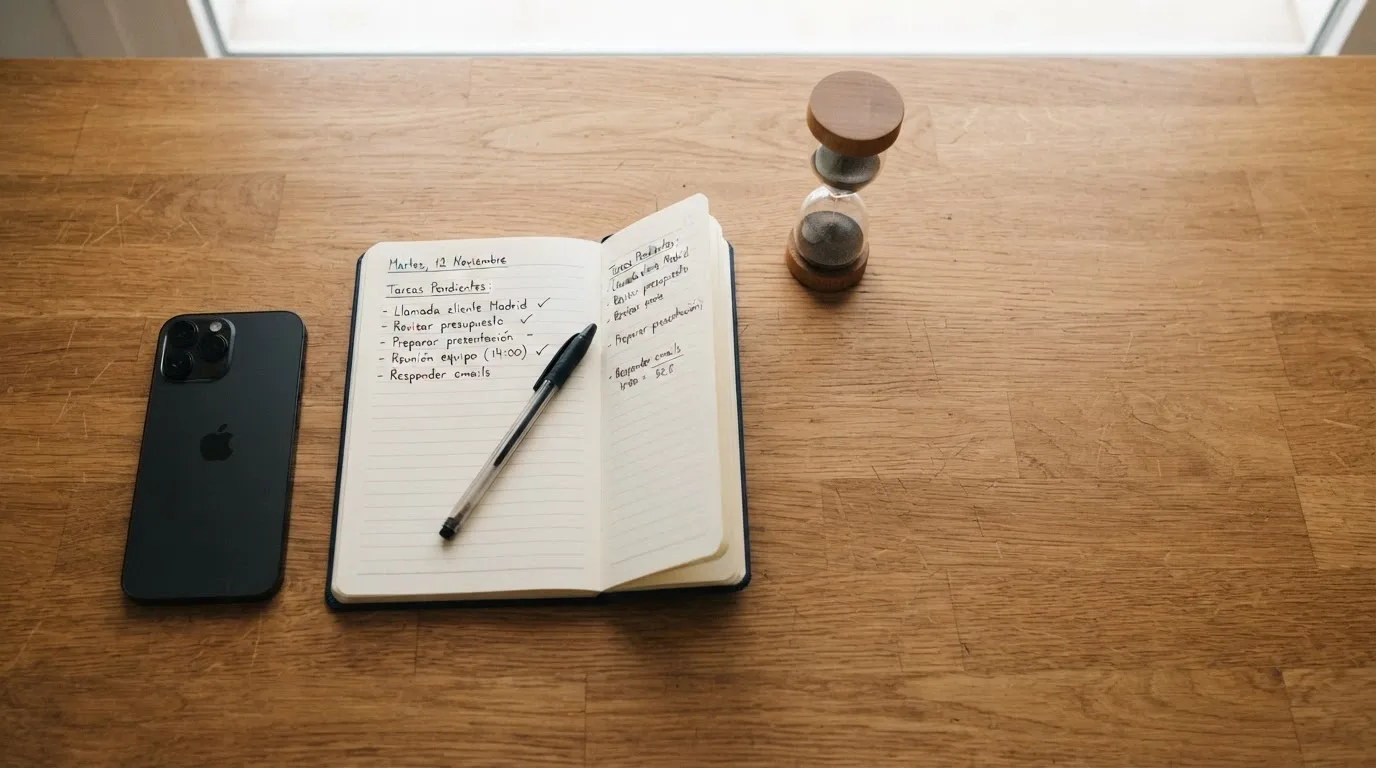 Martes, 12 Noviembre
Tareas Pendientes:
- Llamada cliente Madrid ✓
- Revitar presupuesto ✓
- Preparar presentación -
- Reunión equipo (14:00) ✓
- Responder emails
Tareas Pendientes:
Madrid
presupuesto
- Preparar presentación
- Responder emails